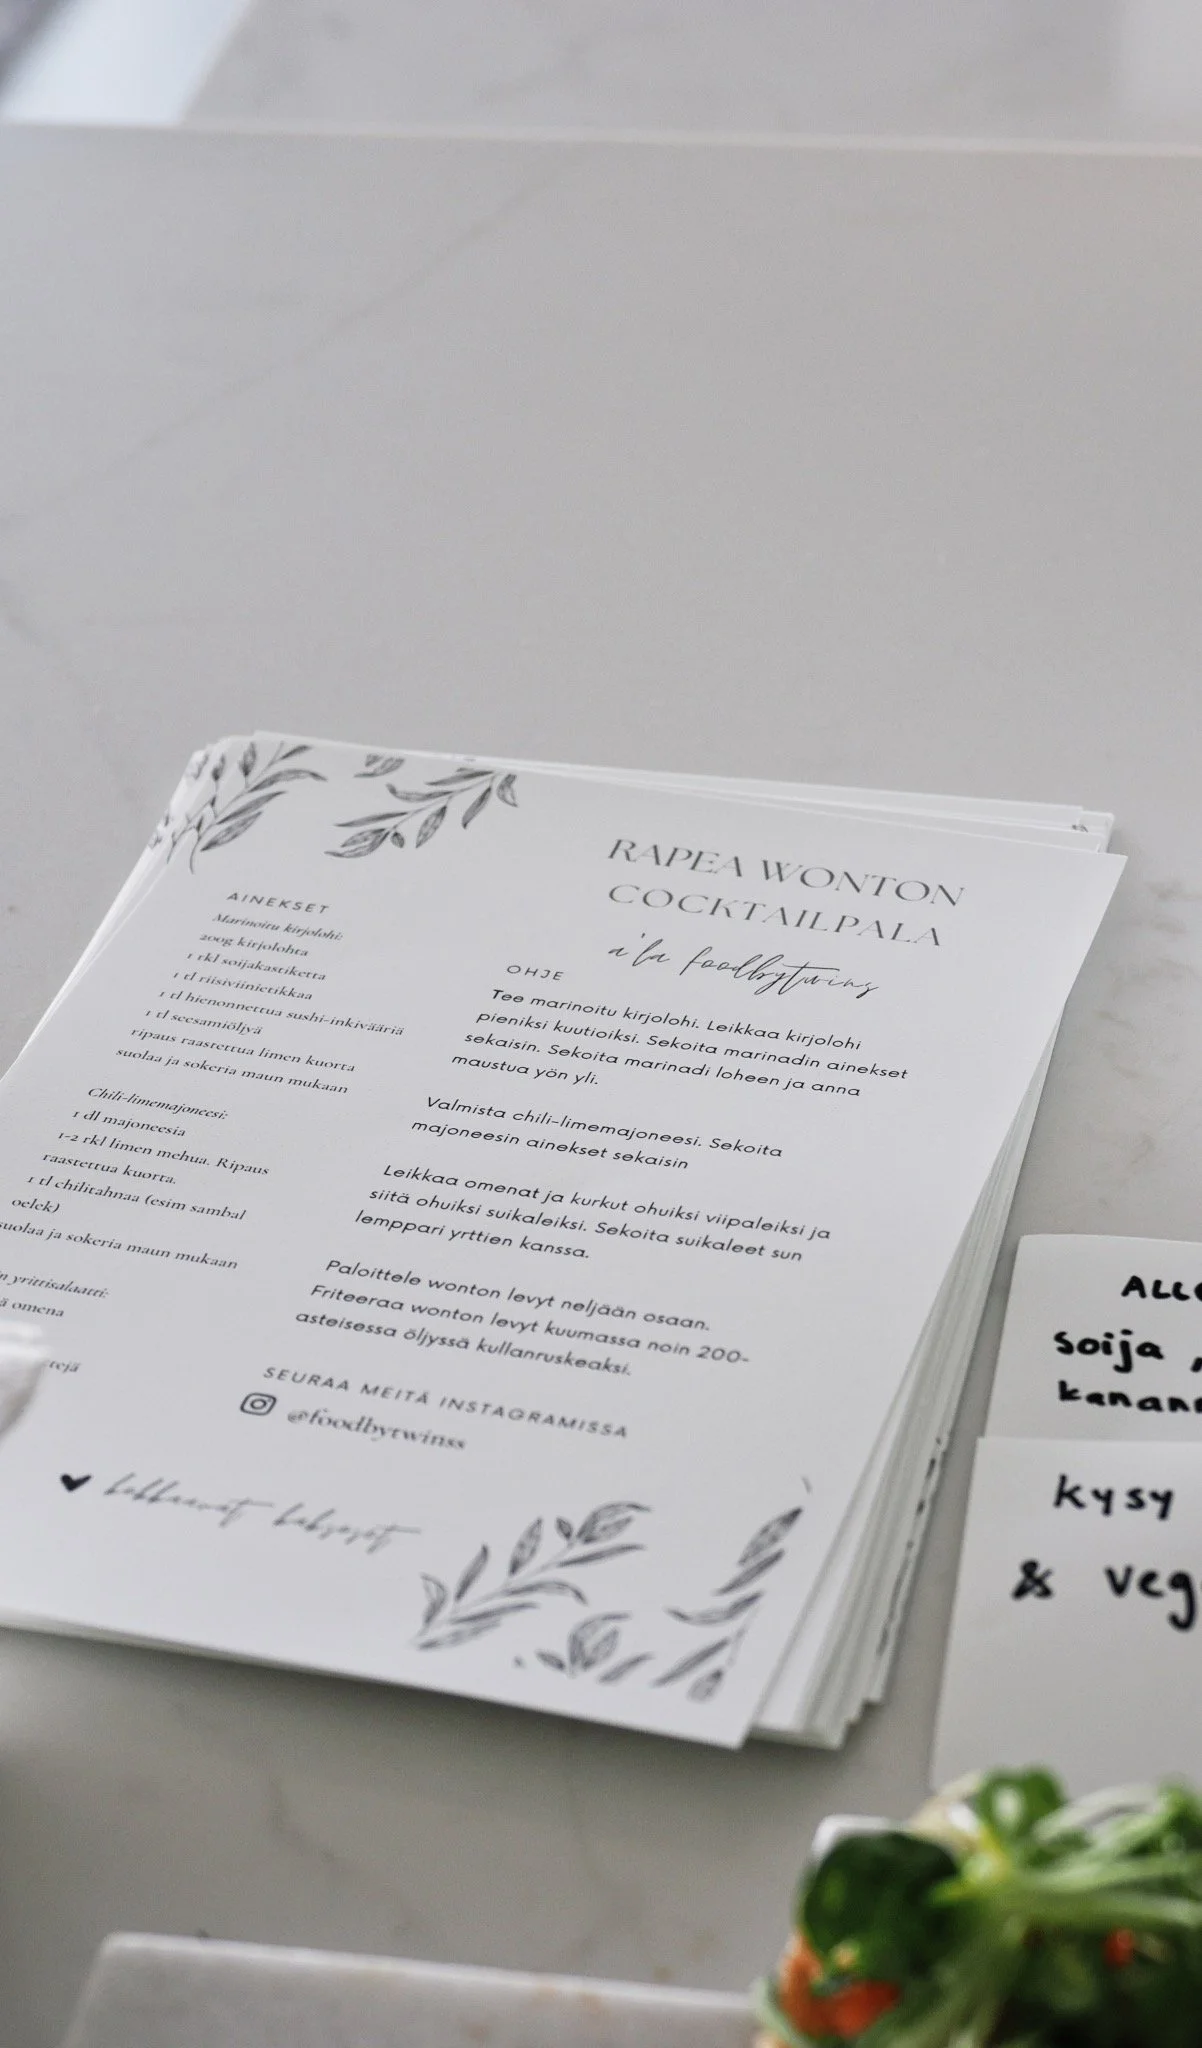 RAPEA WONTON
COCKTAILPALA
a'la foodbytwins
AINEKSET
Marinoitu kirjolohi:
200g kirjolohta
1 rkl soijakastiketta
1 tl riisiviinietikkaa
1 tl hienonnettua sushi-inkivääriä
1 tl seesamiöljyä
ripaus raastettua limen kuorta
suolaa ja sokeria maun mukaan
Chili-limemajoneesi:
1 dl majoneesia
1-2 rkl limen mehua. Ripaus
raastettua kuorta.
1 tl chilitahnaa (esim sambal
oelek)
suolaa ja sokeria maun mukaan
yrittisalaatti:
omena
OHJE
Tee marinoitu kirjolohi. Leikkaa kirjolohi
pieniksi kuutioiksi. Sekoita marinadin ainekset
sekaisin. Sekoita marinadi loheen ja anna
maustua yön yli.
Valmista chili-limemajoneesi. Sekoita
majoneesin ainekset sekaisin
Leikkaa omenat ja kurkut ohuiksi viipaleiksi ja
siitä ohuiksi suikaleiksi. Sekoita suikaleet sun
lemppari yrttien kanssa.
Paloittele wonton levyt neljään osaan.
Friteeraa wonton levyt kuumassa noin 200-
asteisessa öljyssä kullanruskeaksi.
SEURAA MEITÄ INSTAGRAMISSA
@foodbytwinss
ALLE
soija,
kanann
kysy
& veg